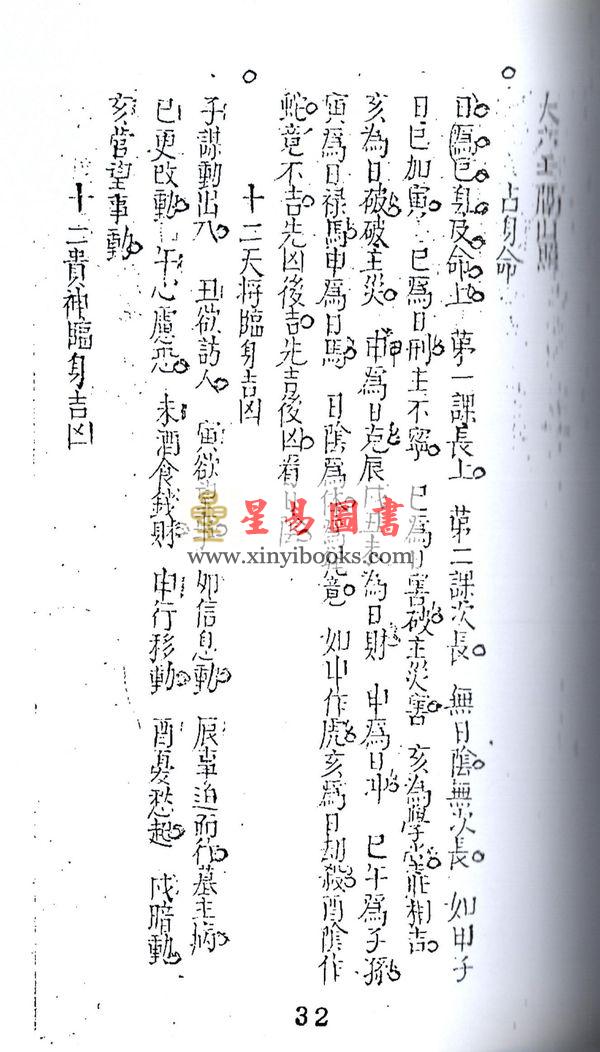 占身命
日為已身及命上 第一課長上 第二課次長 無日陰無次長 如甲子
日巳加寅 巳為日刑主不寧 巳為日害破主災害 亥為學堂旺相吉
亥為日破破主災 申為日克辰戌丑未為日財 申為日冲 巳午為子孫
寅為日祿馬申為日馬 日陰為 竟 如申作虎亥為日劫殺酉陰作
蛇竟不吉先凶後吉先吉後凶看日
十二天將臨身吉凶
子謀動出入 丑欲訪人 寅欲 卯信息動 辰事迫而行墓主病
巳更改動 午心慮恐 未酒食錢財 申行移動 酉憂愁起 戌暗動
亥営望事動
十二貴神臨身吉凶
星易圖書
www.xinyibooks.com
32